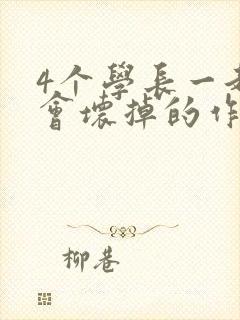 4个學長一
會壞掉的作
柳巷